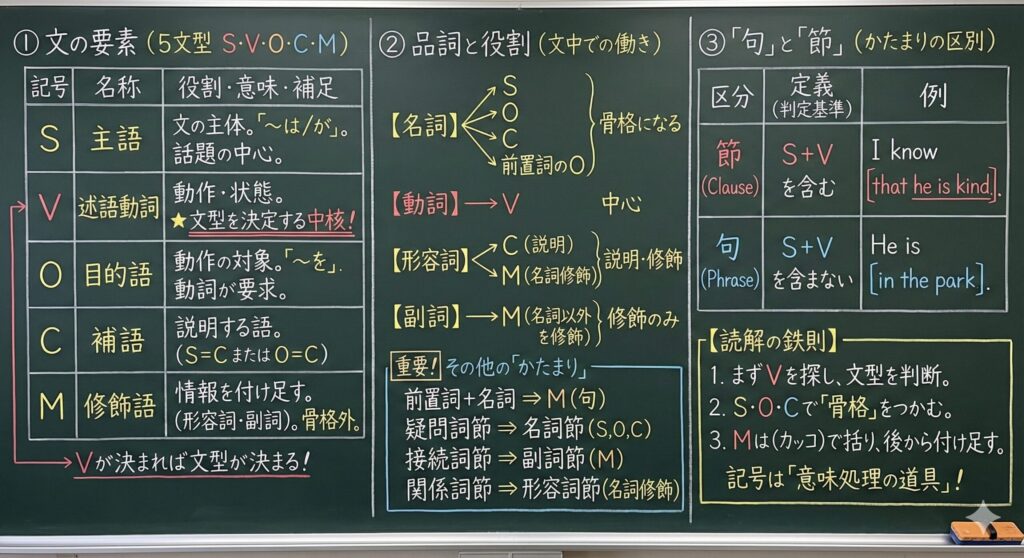 ① 文の要素 (5文型 S・V・O・C・M)
記号 名称 役割・意味・補足
S 主語 文の主体。「～は/が」。
話題の中心。
V 述語動詞 動作・状態。
★文型を決定する中核!
O 目的語 動作の対象。「～を」.
動詞が要求。
C 補語 説明する語。
(S=C または O=C)
M 修飾語 情報を付け足す。
(形容詞・副詞)。骨格外。
→Vが決まれば文型が決まる!
② 品詞と役割 (文中での働き)
【名詞】
S
O
C
前置詞のO
骨格になる
【動詞】→V 中心
【形容詞】
C (説明)
M (名詞修飾)
説明・修飾
【副詞】→M (名詞以外
を修飾) 修飾のみ
重要! その他の「かたまり」
前置詞+名詞 ⇒ M (句)
疑問詞節 ⇒ 名詞節 (S,O,C)
接続詞節 ⇒ 副詞節 (M)
関係詞節 ⇒ 形容詞節 (名詞修飾)
③「句」と「節」 (かたまりの区別)
区分 定義
(判定基準) 例
節
(Clause) S+V
を含む I know
[that he is kind].
句
(Phrase) S+V
を含まない He is
[in the park].
【読解の鉄則】
1. まずVを探し、文型を判断。
2. S・O・Cで「骨格」をつかむ。
3. Mは(カッコ)で括り、後から付け足す。
記号は「意味処理の道具」!